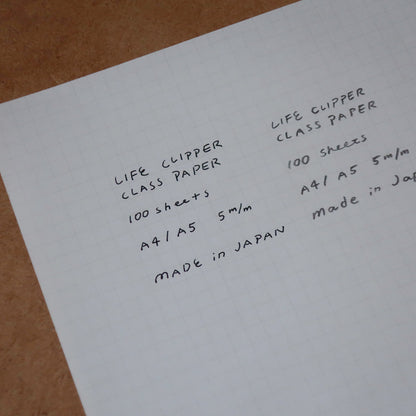 LIFE CLIPPER
CLASS PAPER
100 sheets
A4/A5 5m/m
MADE in JAPAN
LIFE CLIPPER
CLASS PAPER
100 sheets
A4/A5 5m/m
made in